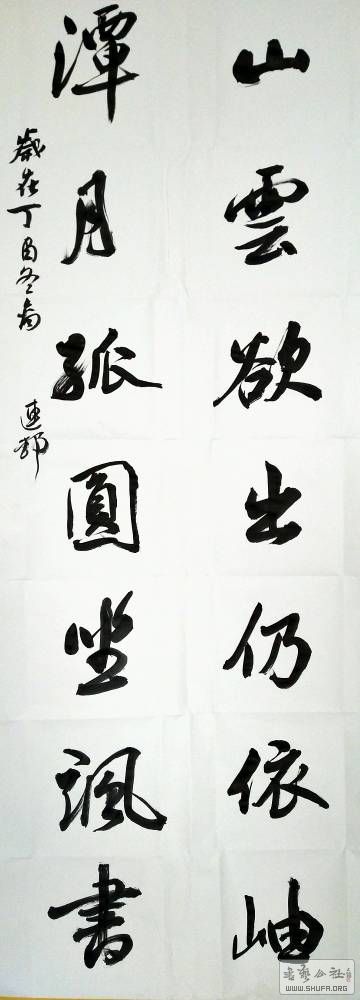 山雲欲出仍依岫
潭月孤圓坐諷書
歲在丁酉冬月 連都
書藝公社
WWW.SHUFA.ORG